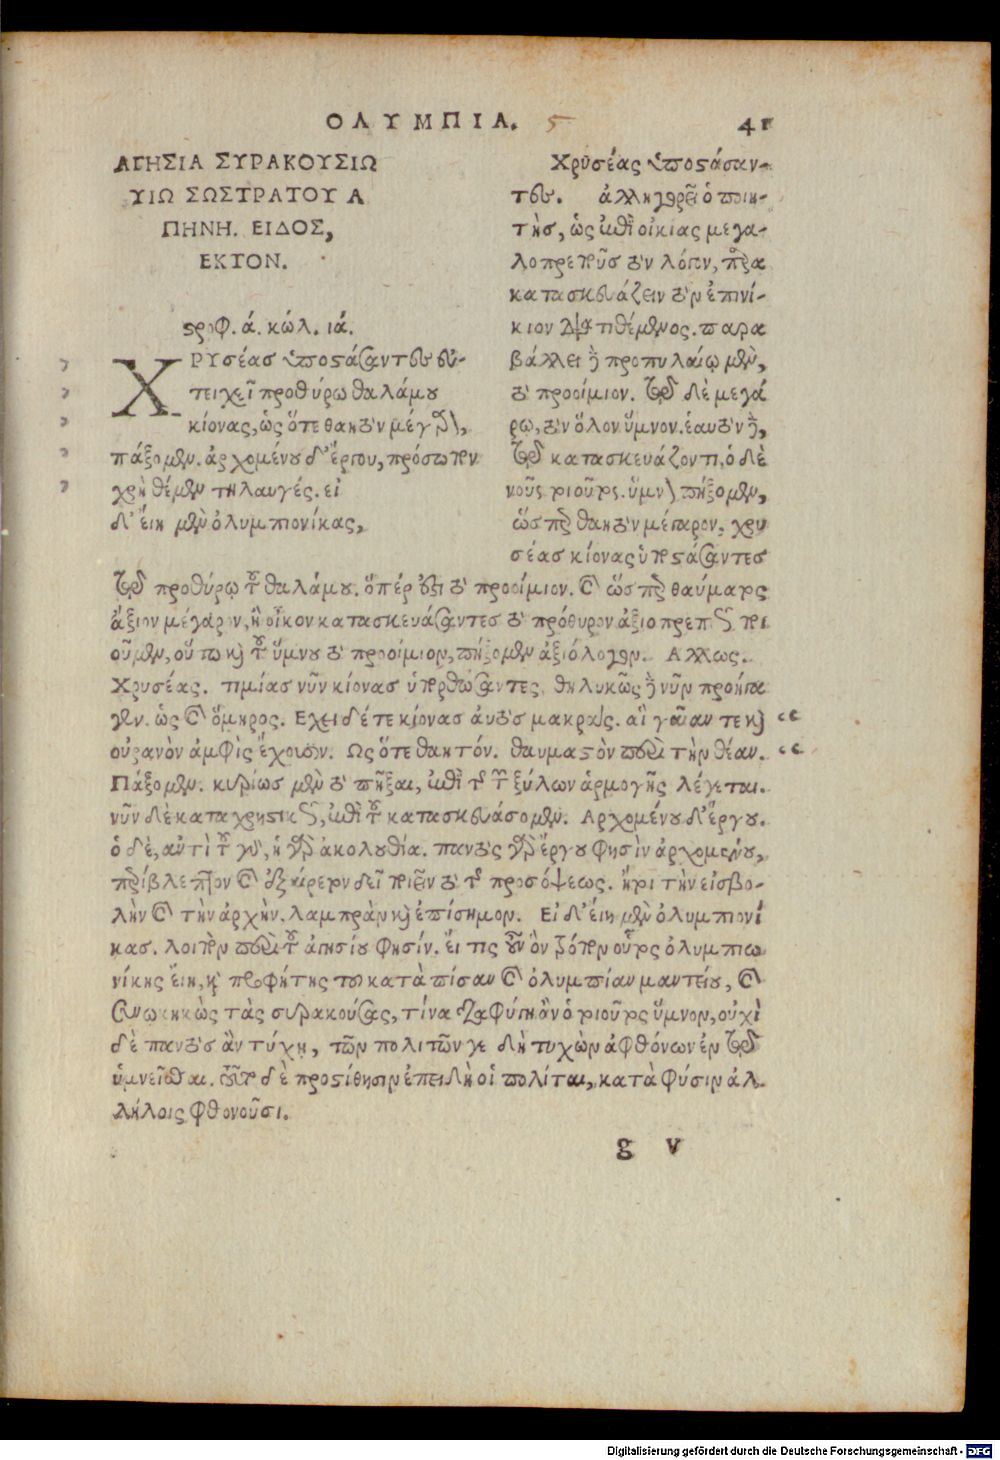 ΟΛΥΜΠΙΑ. 5 41
ΑΓΗΣΙΑ ΣΥΡΑΚΟΥΣΙΩ
ΥΙΩ ΣΩΣΤΡΑΤΟΥ Α
ΠΗΝΗ. ΕΙΔΟΣ,
ΕΚΤΟΝ.
στροφ. ά. κώλ. ιά.
ΧΡΥσέας ὑποστάσαντες εὐ-
τειχεῖ προθύρω θαλάμου
κίονας, ὡς ὅτε θαητὸν μέγαρον,
πάξομεν. ἀρχομένου δ' ἔργου, πρόσωπον
χρὴ θέμεν τηλαυγές. εἰ
δ' εἴη μὲν ὀλυμπιονίκας,
Χρυσέας ὑποστάσαν-
τες. ἀλληγορεῖ ὁ ποιη-
τὴς, ὡς ἐπὶ οἰκίας μεγα-
λοπρεποῦς τὸν λόγον,
κατασκευάζειν τὸν ἐπινί-
κιον τιθέμενος. παρα
βάλλει προπυλαίῳ μὲν,
τὸ προοίμιον. τῷ δὲ μεγά
ρῳ, τὸν ὅλον ὕμνον. ἑαυτὸν
τῷ κατασκευάζοντι, ὁ δὲ
νοῦς τοιοῦτος. ὕμνον πήξομεν,
ὥσπερ θαητὸν μέγαρον. χρυ
σέας κίονας ὑποστάσαντες
τῷ προθύρῳ τοῦ θαλάμου. ὅπέρ ἐστι τὸ προοίμιον. καὶ ὥσπερ θαύματος
ἄξιον μέγαρον, ἢ οἶκον κατασκευάσαντες τὸ πρόθυρον ἀξιοπρεπὲς ποι
οῦμεν, οὕτω καὶ τοῦ ὕμνου τὸ προοίμιον, πήξομεν ἀξιόλογον. Αλλως.
Χρυσέας. τιμίας νῦν κίονας ὑπορθώσαντες, θηλυκῶς νῦν προήγα
γεν. ὡς καὶ ὅμηρος. Εχει δέ τε κίονας αὐτὸς μακράς. αἳ γαῖαν τε καὶ
οὐρανὸν ἀμφὶς ἔχουσιν. Ως ὅτε θαητόν. θαυμαστὸν περὶ τὴν θέαν.
Πάξομεν. κυρίως μὲν τὸ πῆξαι, ἐπὶ τῆς τῶν ξύλων ἁρμογῆς λέγεται.
νῦν δὲ καταχρηστικῶς, ἐπὶ τοῦ κατασκευάσομεν. Αρχομένου δ' ἔργου.
ὁ δὲ, ἀντὶ τοῦ γὰρ, ἡ ἀκολουθία. παντὸς ἔργου φησὶν ἀρχομένου,
περίβλεπτον καὶ ἐξαίρετον δεῖ ποιεῖν τὸ τῆς προσόψεως. ἤτοι τὴν εἰσβο-
λὴν καὶ τὴν ἀρχὴν. λαμπρὰν καὶ ἐπίσημον. Εἰ δ' εἴη μὲν ὀλυμπιονί
κας. λοιπὸν περὶ τοῦ ἀγησίου φησίν. εἴ τις οὖν τοιοῦτος ὀλυμπιο
νίκης εἴη, καὶ προφήτης τοῦ κατὰ πίσαν καὶ ὀλυμπίαν μαντείου, καὶ
συνῳκηκὼς τὰς συρακούσας, τίνα διαφύγῃ ἂν ὁ τοιοῦτος ὕμνον, οὐχὶ
δὲ παντὸς ἂν τύχῃ, τῶν πολιτῶν γε δὴ τυχὼν ἀφθόνων ἐν τῷ
ὑμνεῖσθαι. τοῦτο δὲ προστίθησιν ἐπειδὴ οἱ πολῖται, κατὰ φύσιν ἀλ
λήλοις φθονοῦσι.
g v
Digitalisierung gefördert durch die Deutsche Forschungsgemeinschaft - DFG